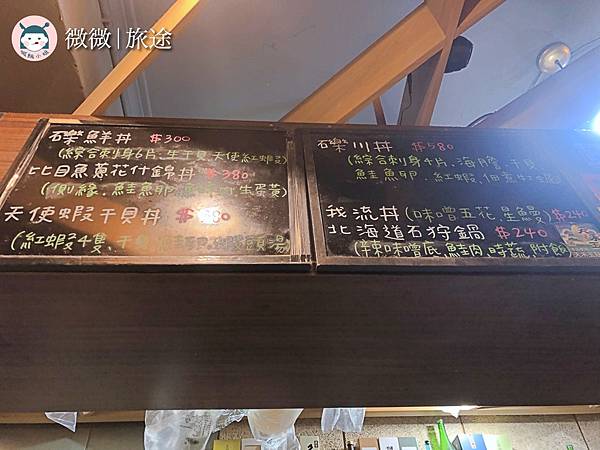 微微|旅途
礫鮮丼 $300
(綜合刺身6片.生干貝.天使紅蝦)
比目魚蔥花什錦丼 $380
(側緣.鮭魚卵 生蛋黃)
天使蝦干貝丼
(紅蝦4隻.干貝 頭湯)
礫川丼 $580
(綜合刺身4片.海膽.干貝
鮭魚卵.紅蝦
我流丼(味噌五花.星鰻)$240
北海道石狩鍋 $240
(辣味噌底.鮭肉.時蔬.附飯)